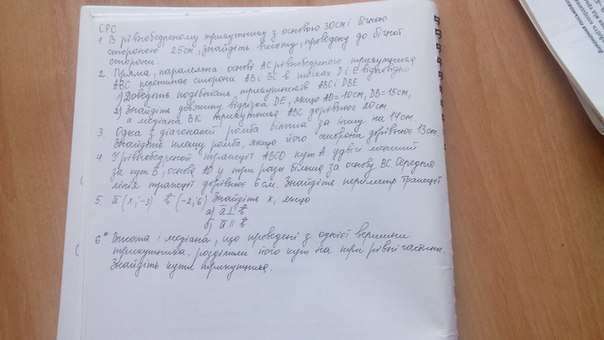 СРС
1. В рівнобедреному трикутнику з основою 30см і бічною
стороною 25см, знайдіть висоту, проведену до бічної
сторони.
2. Пряма, паралельна основі АС рівнобедреного трикутника
АВС перетинає сторони АВ і ВС в точках D і Е відповідно
1) Доведіть подібність трикутників АВС і DBE
2) Знайдіть довжину відрізка DE, якщо AD=10см, DB=15см,
а медіана ВК трикутника АВС дорівнює 20см
3. Одна з діагоналей ромба більша за іншу на 14см.
Знайдіть площу ромба, якщо його сторона дорівнює 13см.
4. У рівнобедреній трапеції ABCD кут А удвічі менший
за кут В, основа AD у три рази більше за основу ВС. Середня
лінія трапеції дорівнює 6см. Знайдіть периметр трапеції
5. a (x; -3) b (-2; 6) Знайдіть х, якщо
а) a ⊥ b
б) a || b
6* Висота і медіана, що проведені з однієї вершини
трикутника, розділили його кут на три рівні частини.
Знайдіть кути трикутника.